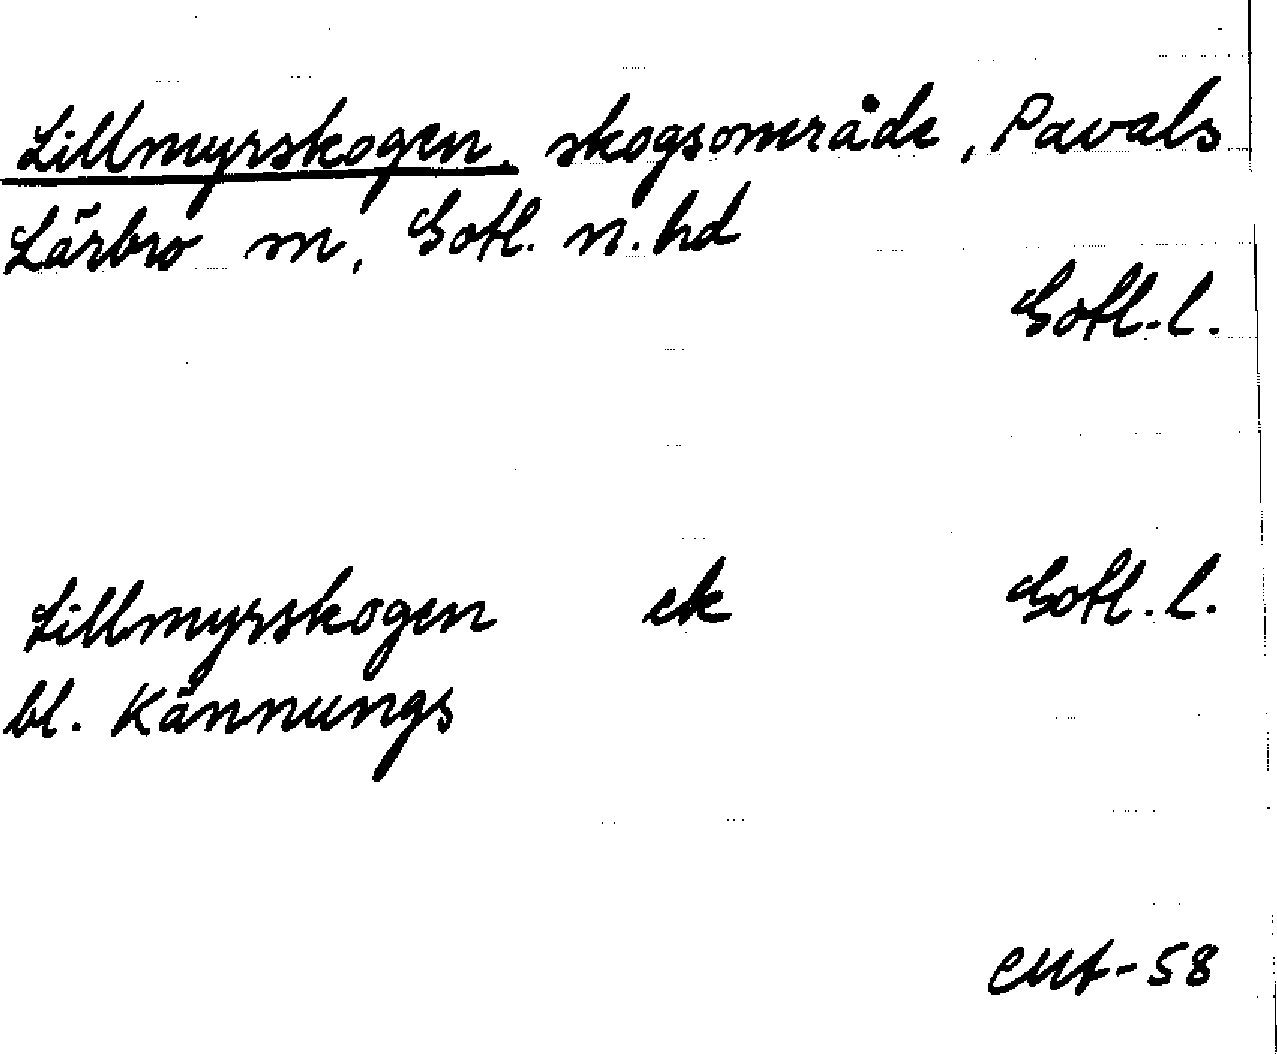 Lillmyrskogen, skogsområde, Pavals
Lärbro sn, Gotl. n. hd
Gotl. l.
Lillmyrskogen ek Gotl. l.
bl. Kännungs
-58